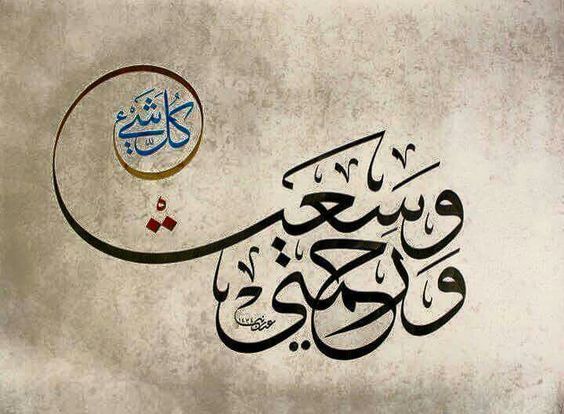 وَرحمتي
وَسِعَت
كُلَّ شَيْءٍ